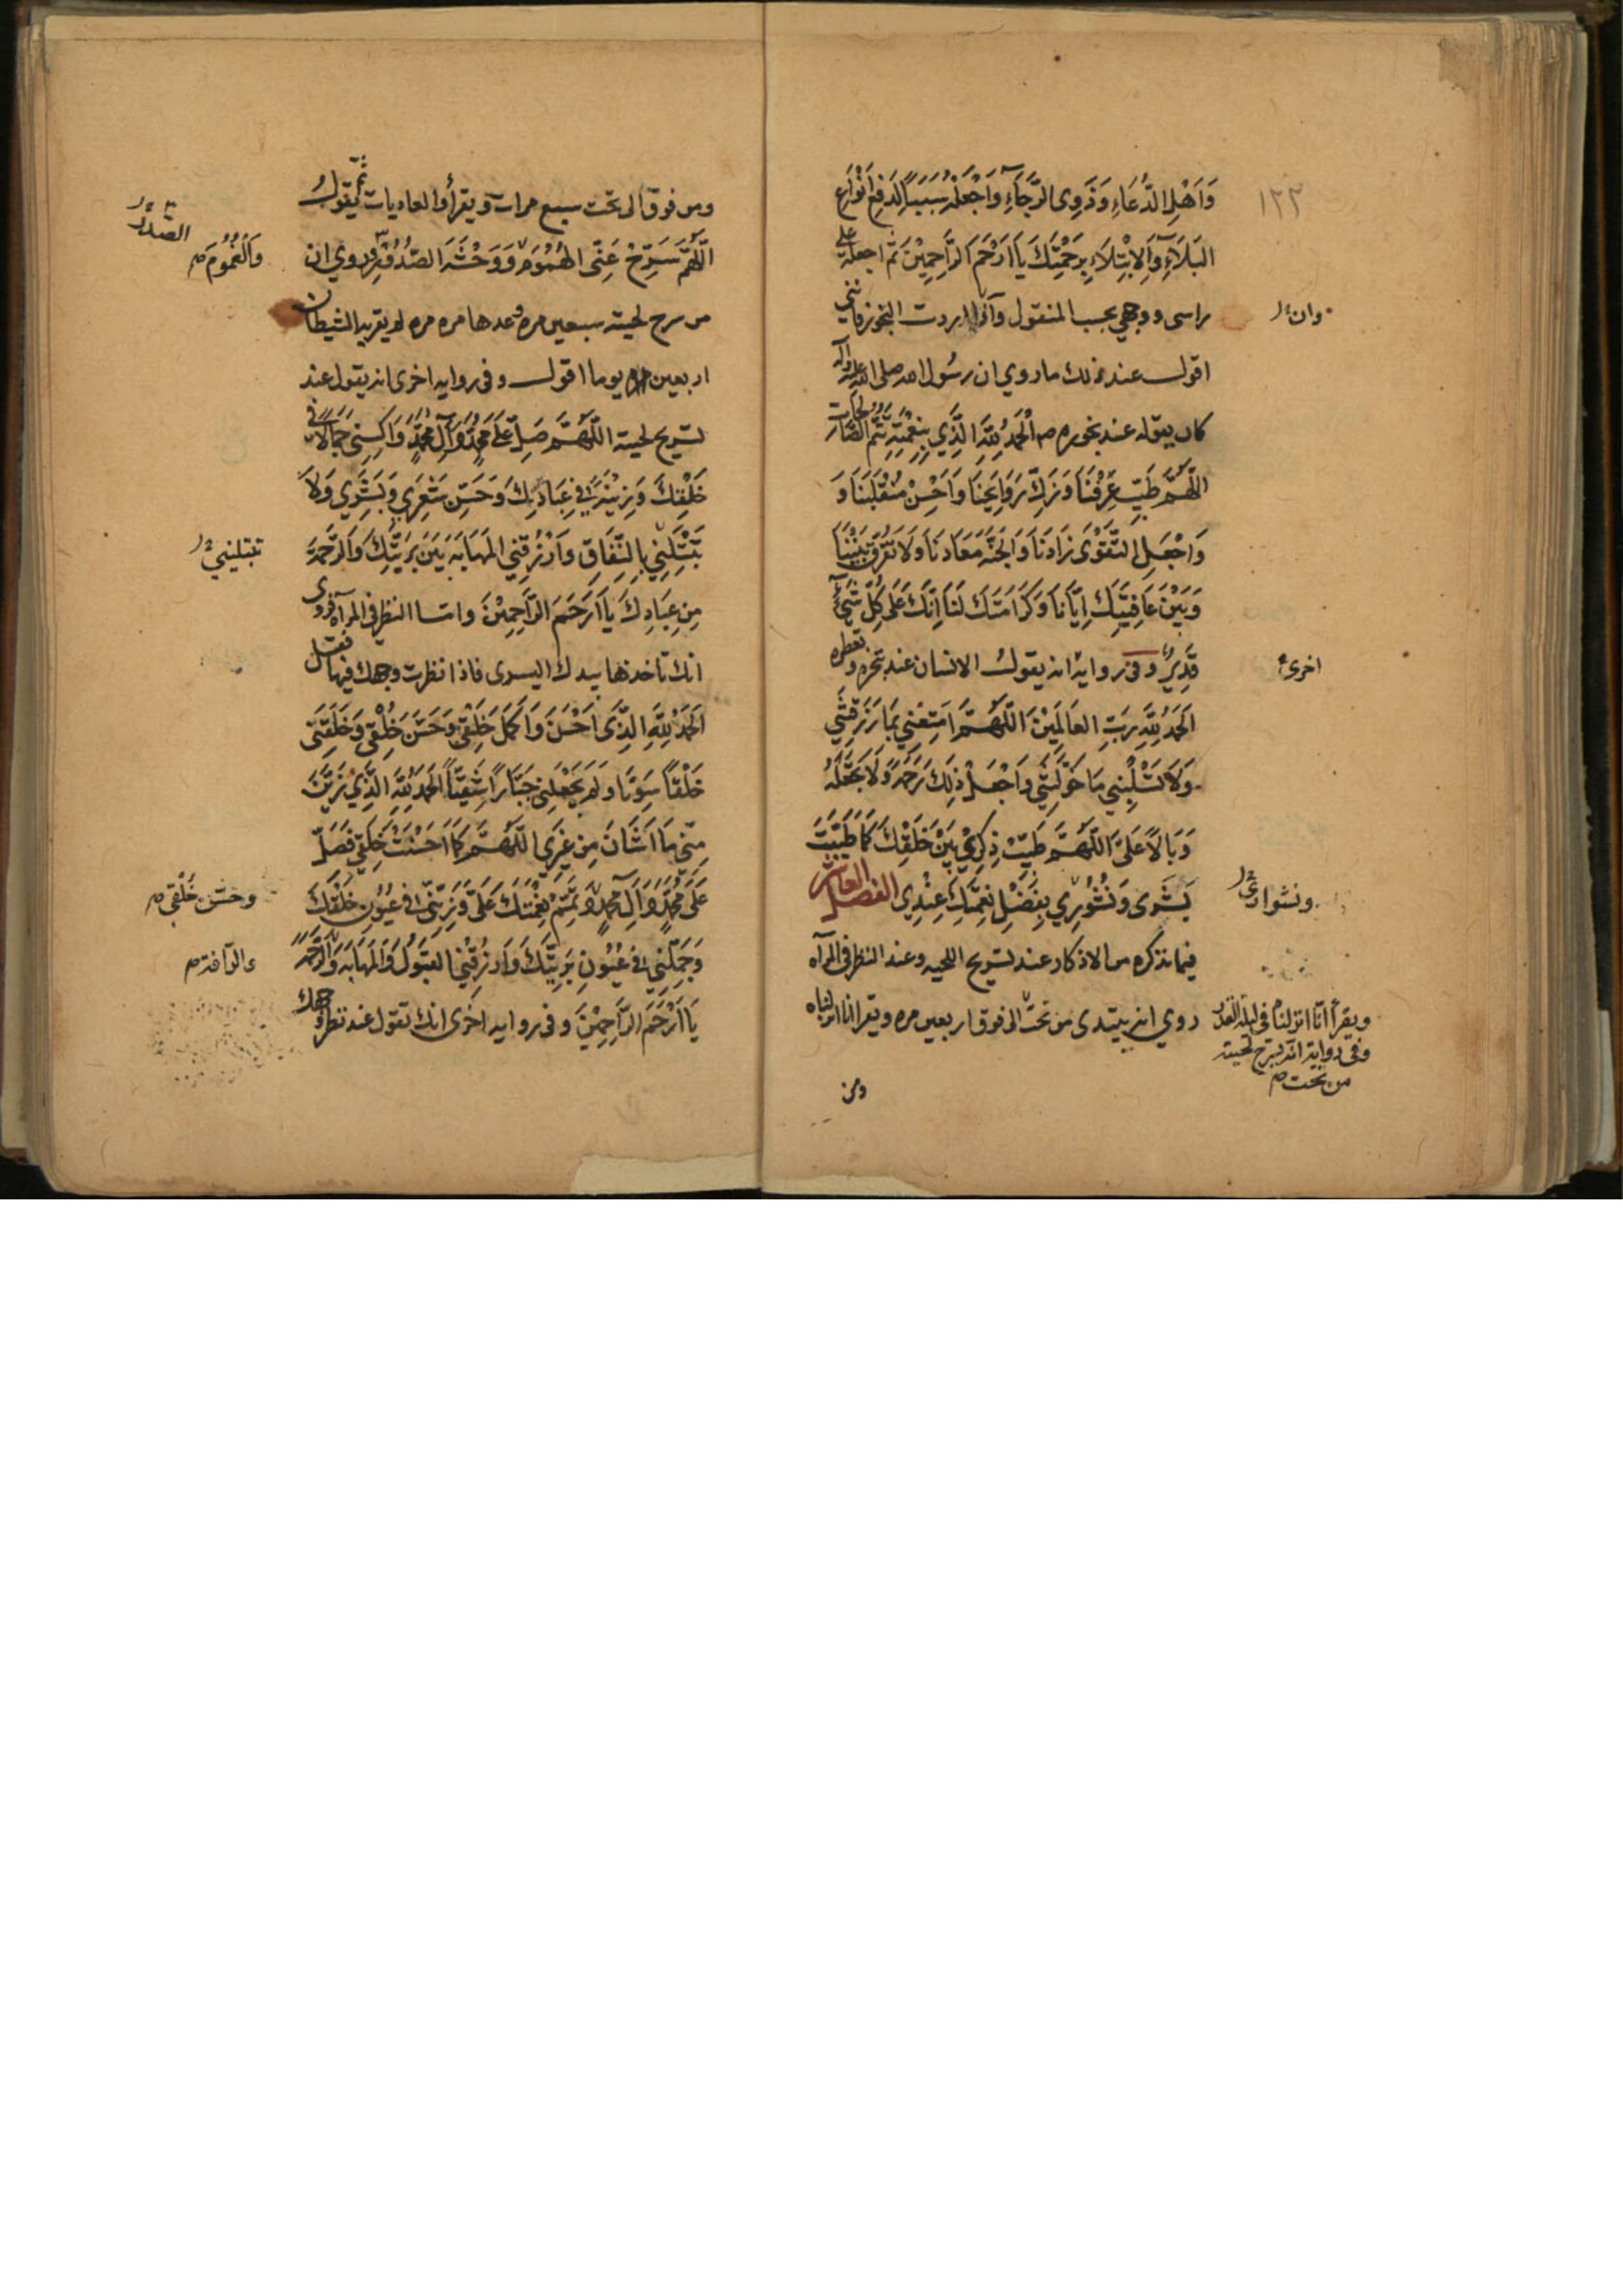 ١٢٢
وَاَهْلِ الدُّعَاءِ وَذَوِى الرَّجَاءِ وَاجْعَلْهُ سَبَبًا لِدَفْعِ اَنْوَاعِ
البَلَاءِ وَالاِبْتِلَاءِ بِرَحْمَتِكَ يَا اَرْحَمَ الرَّاحِمِيْنَ ثم اجعله على
راسى ووجهى بحسب المنقول واذا اردت البخور فاننى
وان
اقول عند ذلك ما روي ان رسول الله صلى الله عليه واله
كان يقوله عند بخوره اَلْحَمْدُ لِلّٰهِ الَّذِي بِنِعْمَتِهِ تَتِمُّ الصَّالِحَاتُ
اللّٰهُمَّ طَيِّبْ عَرْفَنَا وَزَكِّ رَوَايِحَنَا وَاَحْسِنْ مُنْقَلَبَنَا وَ
وَاجْعَلِ التَّقْوٰى زَادَنَا وَالجَنَّةَ مَعَادَنَا وَلَا تُفَرِّقْ بَيْنَنَا
وَبَيْنَ عَافِيَتِكَ اِيَّانَا وَكَرَامَتِكَ لَنَا اِنَّكَ عَلٰى كُلِّ شَيْءٍ
قَدِيرٌ وفى رواية انه يقول الانسان عند تبخره وتعطره
اخرى
الحَمْدُ لِلّٰهِ رَبِّ العَالَمِيْنَ اَللّٰهُمَّ اَمْتِعْنِي بِمَا رَزَقْتَنِي
وَلَا تَسْلُبْنِي مَا خَوَّلْتَنِي وَاجْعَلْ ذٰلِكَ رَحْمَةً وَلَا تَجْعَلْهُ
وَبَالاً عَلَيَّ اَللّٰهُمَّ طَيِّبْ ذِكْرِي بَيْنَ خَلْقِكَ كَمَا طَيَّبْتَ
بَشَرِى وَنُشُورِي بِفَضْلِ نِعْمَتِكَ عِنْدِي الفصل العاشر
ونشوارى
فيما نذكره من الاذكار عند تسريح اللحيه وعند النظر فى المراه
روي انه يبتدى من تحت الى فوق اربعين مره ويقرا انا انزلناه
ويقرأ انا انزلناه فى ليلة القدر
وفى رواية انه يسرح لحيته
من تحت
ومن
ومن فوق الى تحت سبع مرات ويقرأ والعاديات ثم يقول
اللّٰهُمَّ سَرِّحْ عَنِّى الهُمُوْمَ وَوَحْشَةَ الصُّدُوْرِ وروي ان
الصدر
وَالْغُمُوْمَ
من سرح لحيته سبعين مره وعدها مره مره لم يقربه الشيطان
اربعين يوما اقول وفى روايه اخرى انه يقول عند
تسريح لحيته اللّٰهُمَّ صَلِّ عَلٰى مُحَمَّدٍ وَآلِ مُحَمَّدٍ وَاكْسِنِي جَمَالاً فِى
خَلْقِكَ وَزِيْنَةً فِى عِبَادِكَ وَحَسِّنْ شَعْرِي وَبَشَرِي وَلَا
تَبْتَلِنِي بِالنِّفَاقِ وَارْزُقْنِي المَهَابَةَ بَيْنَ بَرِيَّتِكَ وَالرَّحْمَةَ
تبتليني
مِنْ عِبَادِكَ يَا اَرْحَمَ الرَّاحِمِيْنَ واما النظر فى المراه فروى
انك تاخذها بيدك اليسرى فاذا نظرت وجهك فيها فقل
الحَمْدُ لِلّٰهِ الَّذِى اَحْسَنَ وَاَكْمَلَ خَلْقِي وَحَسَّنَ خُلْقِي وَخَلَقَنِى
خَلْقاً سَوِيًّا وَلَمْ يَجْعَلْنِي جَبَّاراً شَقِيًّا الحَمْدُ لِلّٰهِ الَّذِي زَيَّنَ
مِنِّي مَا اَشَانَ مِنْ غَيْرِي اللّٰهُمَّ كَمَا اَحْسَنْتَ خَلْقِي فَصَلِّ
عَلٰى مُحَمَّدٍ وَآلِ مُحَمَّدٍ وَتَمِّمْ نِعْمَتَكَ عَلَيَّ وَزَيِّنِّي فِى عُيُوْنِ خَلْقِكَ
وحسّن خُلْقى
وَجَمِّلْنِي فِى عُيُوْنِ بَرِيَّتِكَ وَارْزُقْنِي القَبُوْلَ وَالمَهَابَةَ وَالرَّحْمَةَ
والرافة
يَا اَرْحَمَ الرَّاحِمِيْنَ وفى روايه اخرى انك تقول عند نظر وجهك